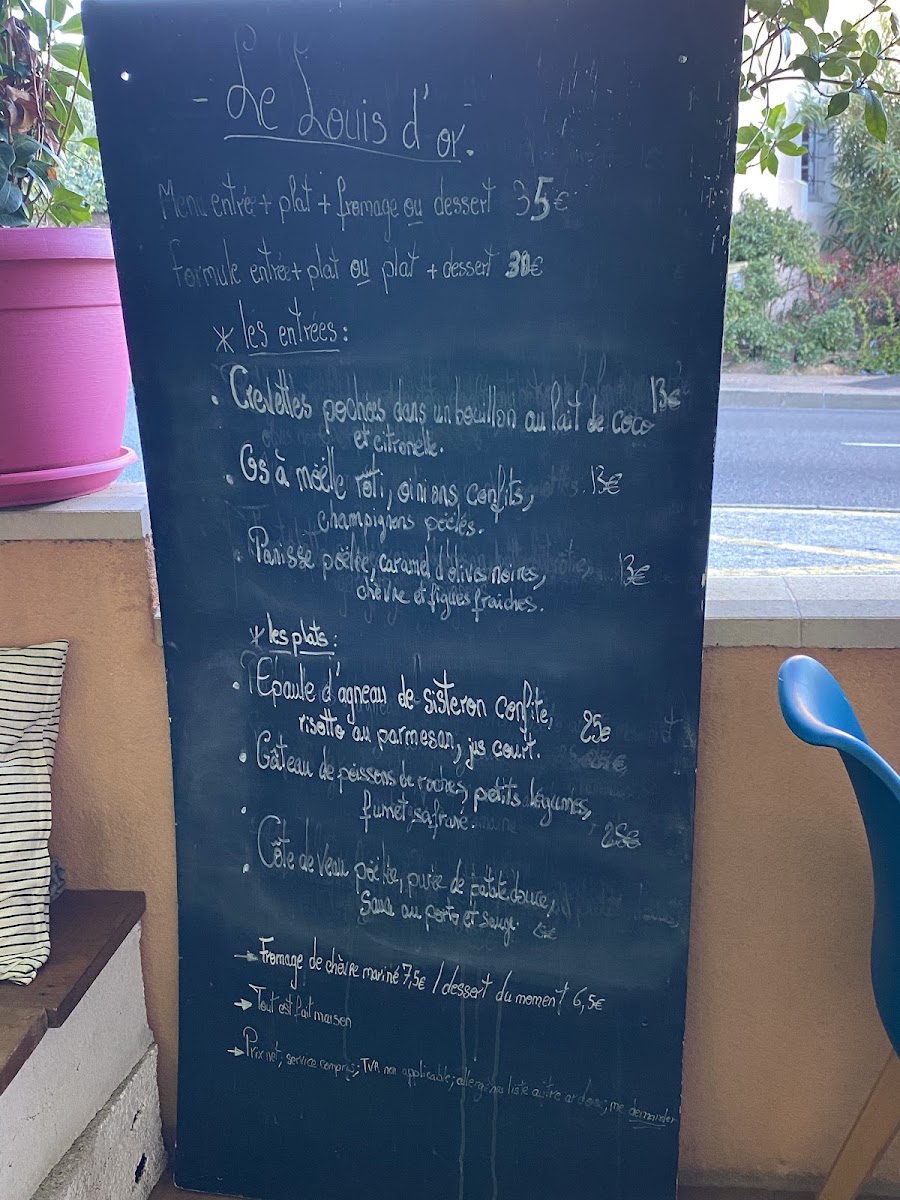 - Le Louis d'or.
Menu entrée + plat + fromage ou dessert 35€
Formule entrée + plat ou plat + dessert 30€
* les entrées:
• Crevettes pochées dans un bouillon au lait de coco 13€
et citronelle.
• Os à moëlle rôti, oinions confits, 13€
champignons poêlés.
• Panisse poêlée, caramel d'olives noires, 13€
chèvre et figues fraiches.
* les plats:
• l'Epaule d'agneau de sisteron confite, 25€
risotto au parmesan, jus court.
• Gâteau de poissons de roches, petits légumes,
fumet safrané. 25€
• Côte de Veau poêlée, purée de patate douce,
Sauce au porto et sauge.
→ Fromage de chèvre mariné 7,5€ / dessert du moment 6,5€
→ Tout est fait maison
→ Prix net; service compris; TVA non applicable; allergènes liste autre ardoise; me demander